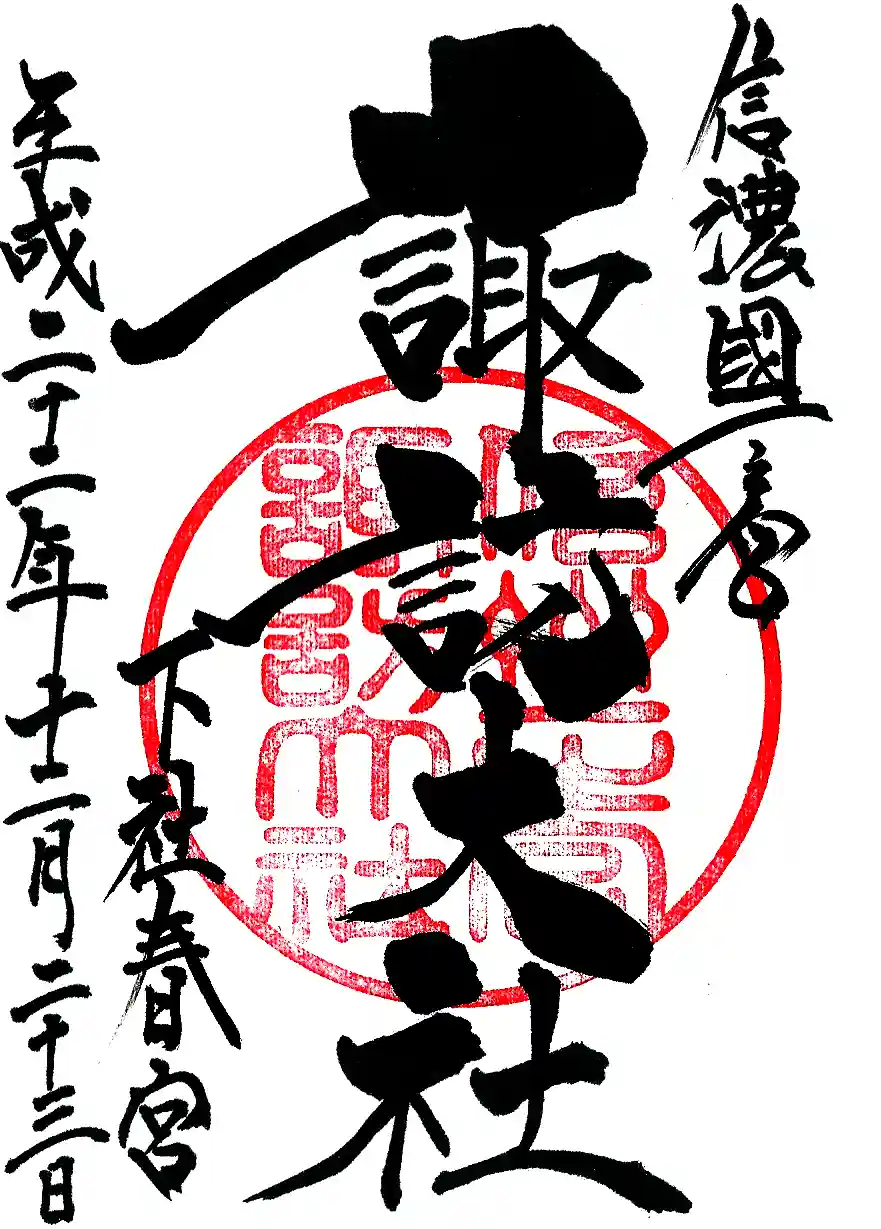 信濃國一之宮
諏訪大社
下社春宮
平成二十二年十一月二十三日
信州一之宮
諏訪大社